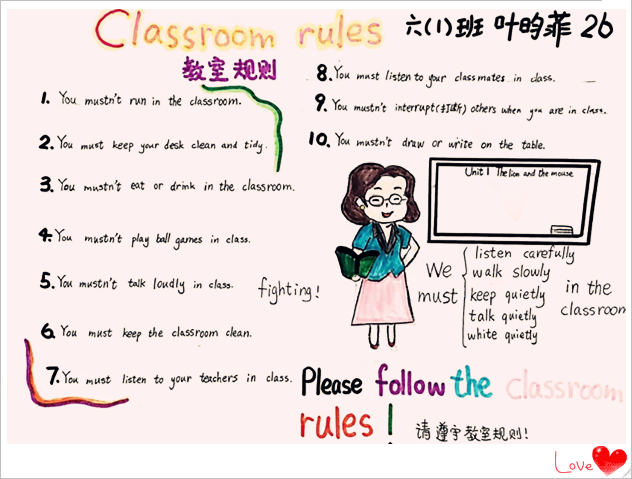 Classroom rules
六(1)班 叶昀菲 26
教室规则
1. You mustn't run in the classroom.
2. You must keep your desk clean and tidy.
3. You mustn't eat or drink in the classroom.
4. You mustn't play ball games in class.
5. You mustn't talk loudly in class.
6. You must keep the classroom clean.
7. You must listen to your teachers in class.
fighting!
8. You must listen to your classmates in class.
9. You mustn't interrupt(打断) others when you are in class.
10. You mustn't draw or write on the table.
Unit 1 The lion and the mouse
We must
listen carefully
walk slowly
keep quietly
talk quietly
white quietly
in the classroom
Please follow the classroom
rules!
请遵守教室规则!
Love